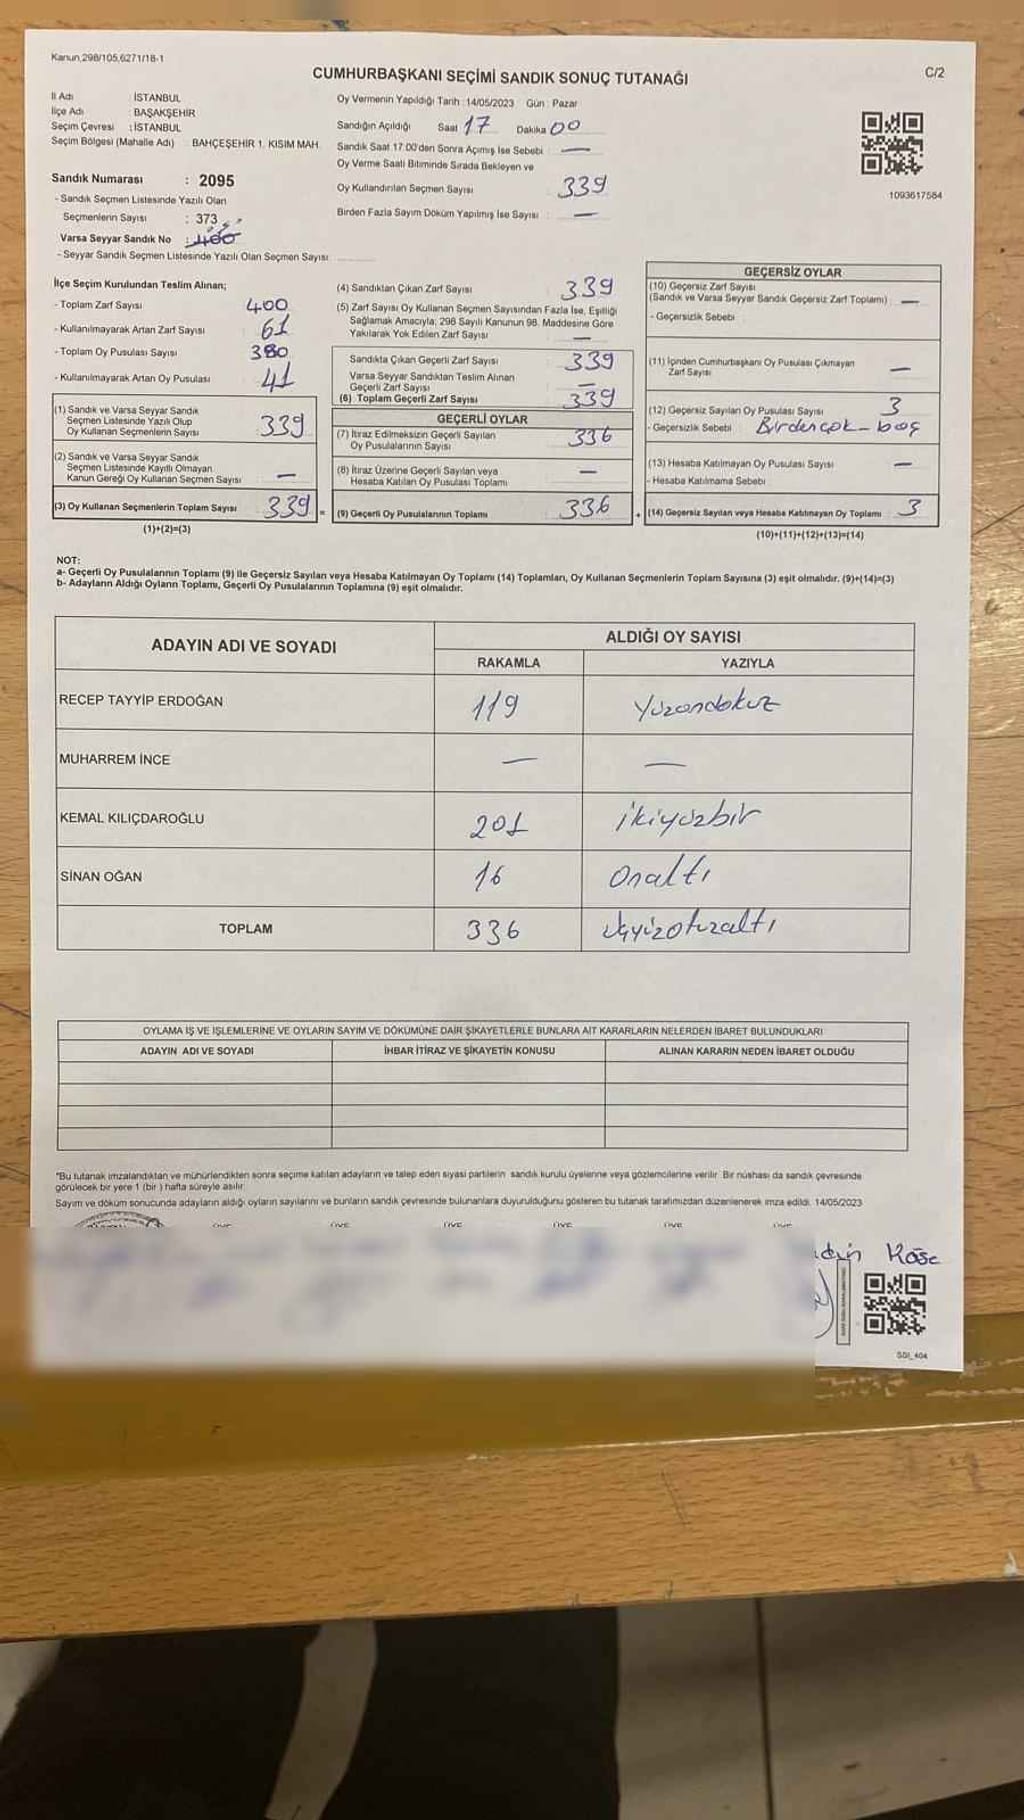 Kanun,298/105,6271/18-1
CUMHURBAŞKANI SEÇİMİ SANDIK SONUÇ TUTANAĞI
C/2
İl Adı İSTANBUL
İlçe Adı BAŞAKŞEHİR
Seçim Çevresi : İSTANBUL
Seçim Bölgesi (Mahalle Adı) BAHÇEŞEHİR 1. KISIM MAH.
Sandık Numarası : 2095
- Sandık Seçmen Listesinde Yazılı Olan
Seçmenlerin Sayısı : 373
Varsa Seyyar Sandık No : 400
- Seyyar Sandık Seçmen Listesinde Yazılı Olan Seçmen Sayısı
Oy Vermenin Yapıldığı Tarih : 14/05/2023 Gün : Pazar
Sandığın Açıldığı Saat 17 Dakika 00
Sandık Saat 17:00'den Sonra Açımış İse Sebebi : —
Oy Verme Saati Bitiminde Sırada Bekleyen ve
Oy Kullandırılan Seçmen Sayısı 339
Birden Fazla Sayım Döküm Yapılmış İse Sayısı —
1093617584
İlçe Seçim Kurulundan Teslim Alınan;
- Toplam Zarf Sayısı 400
- Kullanılmayarak Artan Zarf Sayısı 61
- Toplam Oy Pusulası Sayısı 380
- Kullanılmayarak Artan Oy Pusulası 41
(1) Sandık ve Varsa Seyyar Sandık
Seçmen Listesinde Yazılı Olup
Oy Kullanan Seçmenlerin Sayısı 339
(2) Sandık ve Varsa Seyyar Sandık
Seçmen Listesinde Kayıtlı Olmayan
Kanun Gereği Oy Kullanan Seçmen Sayısı —
(3) Oy Kullanan Seçmenlerin Toplam Sayısı 339 =
(1)+(2)=(3)
(4) Sandıktan Çıkan Zarf Sayısı 339
(5) Zarf Sayısı Oy Kullanan Seçmen Sayısından Fazla İse, Eşitliği
Sağlamak Amacıyla; 298 Sayılı Kanunun 98. Maddesine Göre
Yakılarak Yok Edilen Zarf Sayısı —
Sandıkta Çıkan Geçerli Zarf Sayısı 339
Varsa Seyyar Sandıktan Teslim Alınan
Geçerli Zarf Sayısı —
(6) Toplam Geçerli Zarf Sayısı 339
GEÇERLİ OYLAR
(7) İtiraz Edilmeksizin Geçerli Sayılan
Oy Pusulalarının Sayısı 336
(8) İtiraz Üzerine Geçerli Sayılan veya
Hesaba Katılan Oy Pusulası Toplamı —
(9) Geçerli Oy Pusulalarının Toplamı 336 +
GEÇERSİZ OYLAR
(10) Geçersiz Zarf Sayısı
(Sandık ve Varsa Seyyar Sandık Geçersiz Zarf Toplamı) —
- Geçersizlik Sebebi
(11) İçinden Cumhurbaşkanı Oy Pusulası Çıkmayan
Zarf Sayısı —
(12) Geçersiz Sayılan Oy Pusulası Sayısı 3
- Geçersizlik Sebebi Birdençok - boş
(13) Hesaba Katılmayan Oy Pusulası Sayısı —
- Hesaba Katılmama Sebebi
(14) Geçersiz Sayılan veya Hesaba Katılmayan Oy Toplamı 3
(10)+(11)+(12)+(13)=(14)
NOT:
a- Geçerli Oy Pusulalarının Toplamı (9) ile Geçersiz Sayılan veya Hesaba Katılmayan Oy Toplamı (14) Toplamları, Oy Kullanan Seçmenlerin Toplam Sayısına (3) eşit olmalıdır. (9)+(14)=(3)
b- Adayların Aldığı Oyların Toplamı, Geçerli Oy Pusulalarının Toplamına (9) eşit olmalıdır.
ADAYIN ADI VE SOYADI
ALDIĞI OY SAYISI
RAKAMLA YAZIYLA
RECEP TAYYİP ERDOĞAN 119 Yüzondokuz
MUHARREM İNCE — —
KEMAL KILIÇDAROĞLU 201 ikiyüzbir
SİNAN OĞAN 16 Onaltı
TOPLAM 336 üçyüzotuzaltı
OYLAMA İŞ VE İŞLEMLERİNE VE OYLARIN SAYIM VE DÖKÜMÜNE DAİR ŞİKAYETLERLE BUNLARA AİT KARARLARIN NELERDEN İBARET BULUNDUKLARI
ADAYIN ADI VE SOYADI İHBAR İTİRAZ VE ŞİKAYETİN KONUSU ALINAN KARARIN NEDEN İBARET OLDUĞU
*Bu tutanak imzalandıktan ve mühürlendikten sonra seçime katılan adayların ve talep eden siyasi partilerin sandık kurulu üyelerine veya gözlemcilerine verilir. Bir nüshası da sandık çevresinde
görülecek bir yere 1 (bir ) hafta süreyle asılır.
Sayım ve döküm sonucunda adayların aldığı oyların sayılarını ve bunların sandık çevresinde bulunanlara duyurulduğunu gösteren bu tutanak tarafımızdan düzenlenerek imza edildi. 14/05/2023
Köse
SDI_404